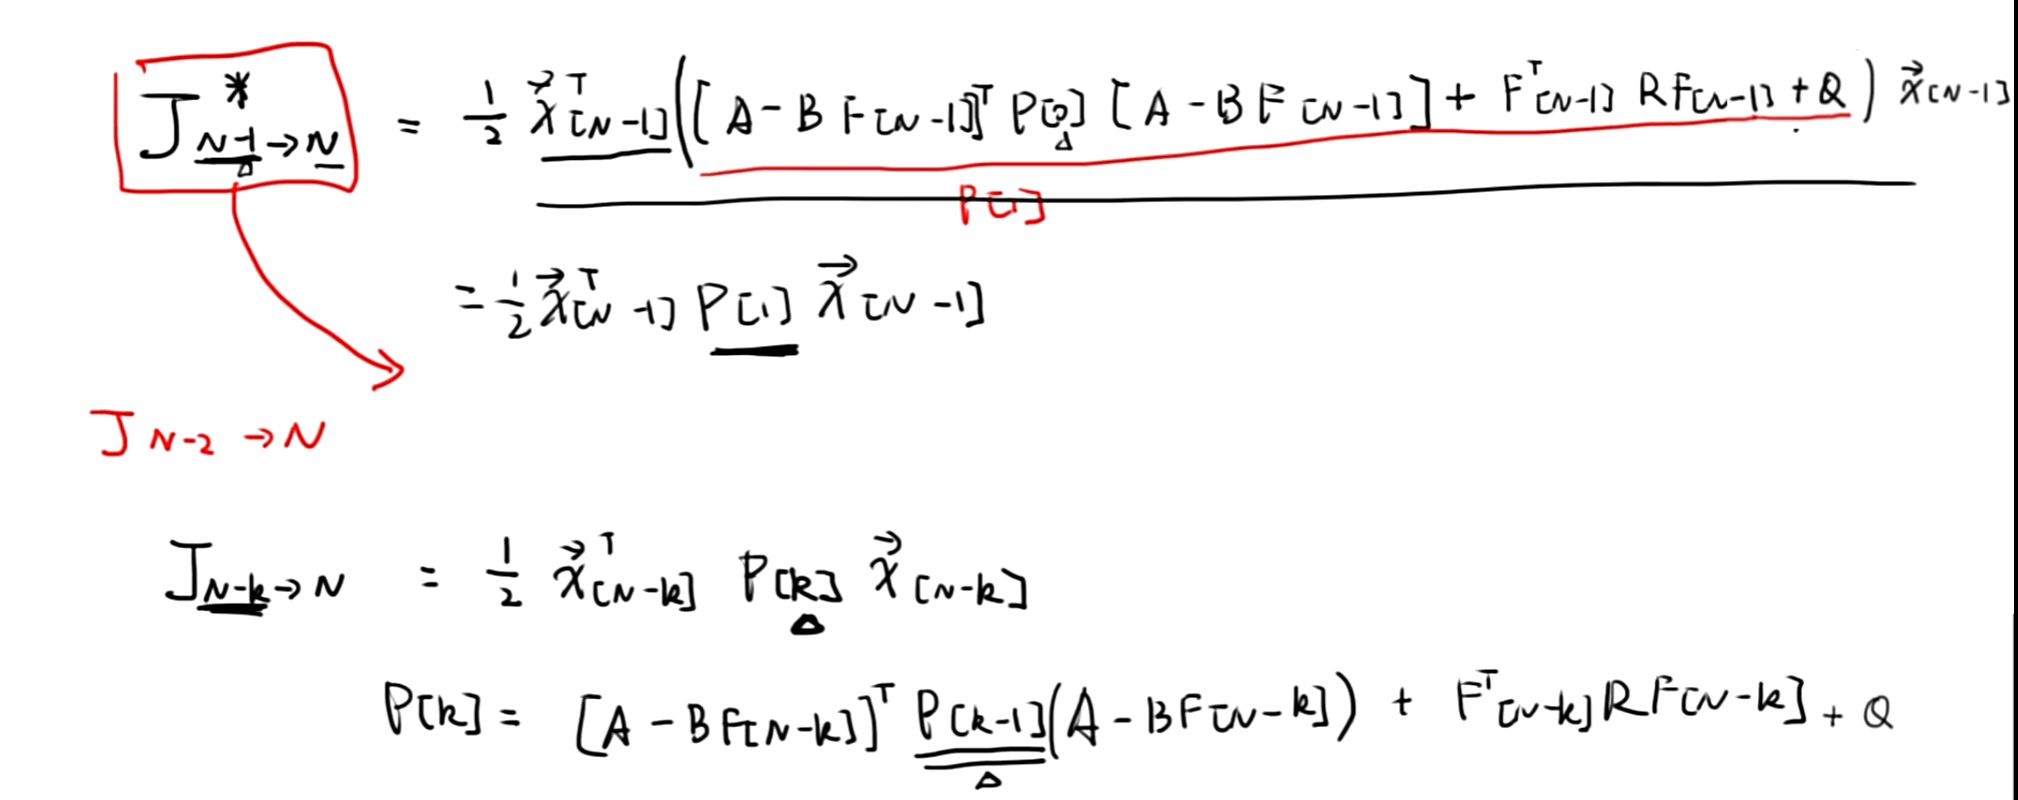 J*_{N-1→N} = 1/2 x⃗ᵀ[N-1] ([A - B F[N-1]]ᵀ P[0] [A - B F[N-1]] + Fᵀ[N-1] R F[N-1] + Q) x⃗[N-1]
P[1]
= 1/2 x⃗ᵀ[N-1] P[1] x⃗[N-1]
J_{N-2→N}
J_{N-k→N} = 1/2 x⃗ᵀ[N-k] P[k] x⃗[N-k]
P[k] = [A - B F[N-k]]ᵀ P[k-1] (A - B F[N-k]) + Fᵀ[N-k] R F[N-k] + Q